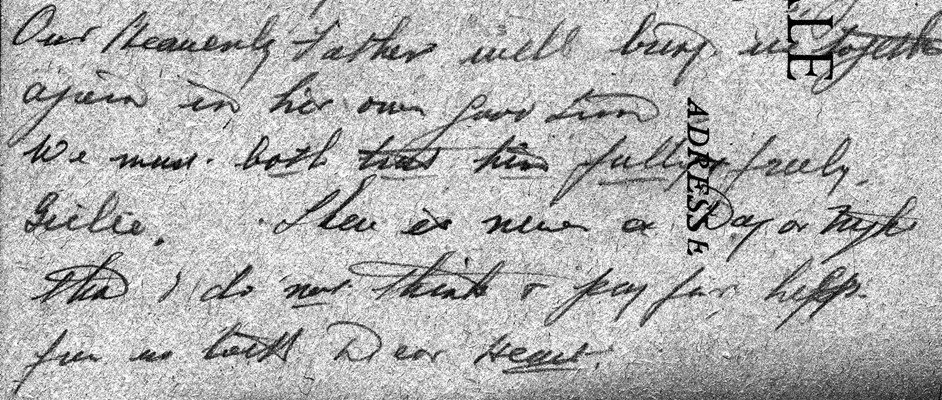 Our Heavenly Father will bring us together
again in his own good time
We must both trust him fully & freely.
Girlie. There is never a Day or Night
that I do not think & pray for help
for us both Dear Heart.
ALE
ADRESSE